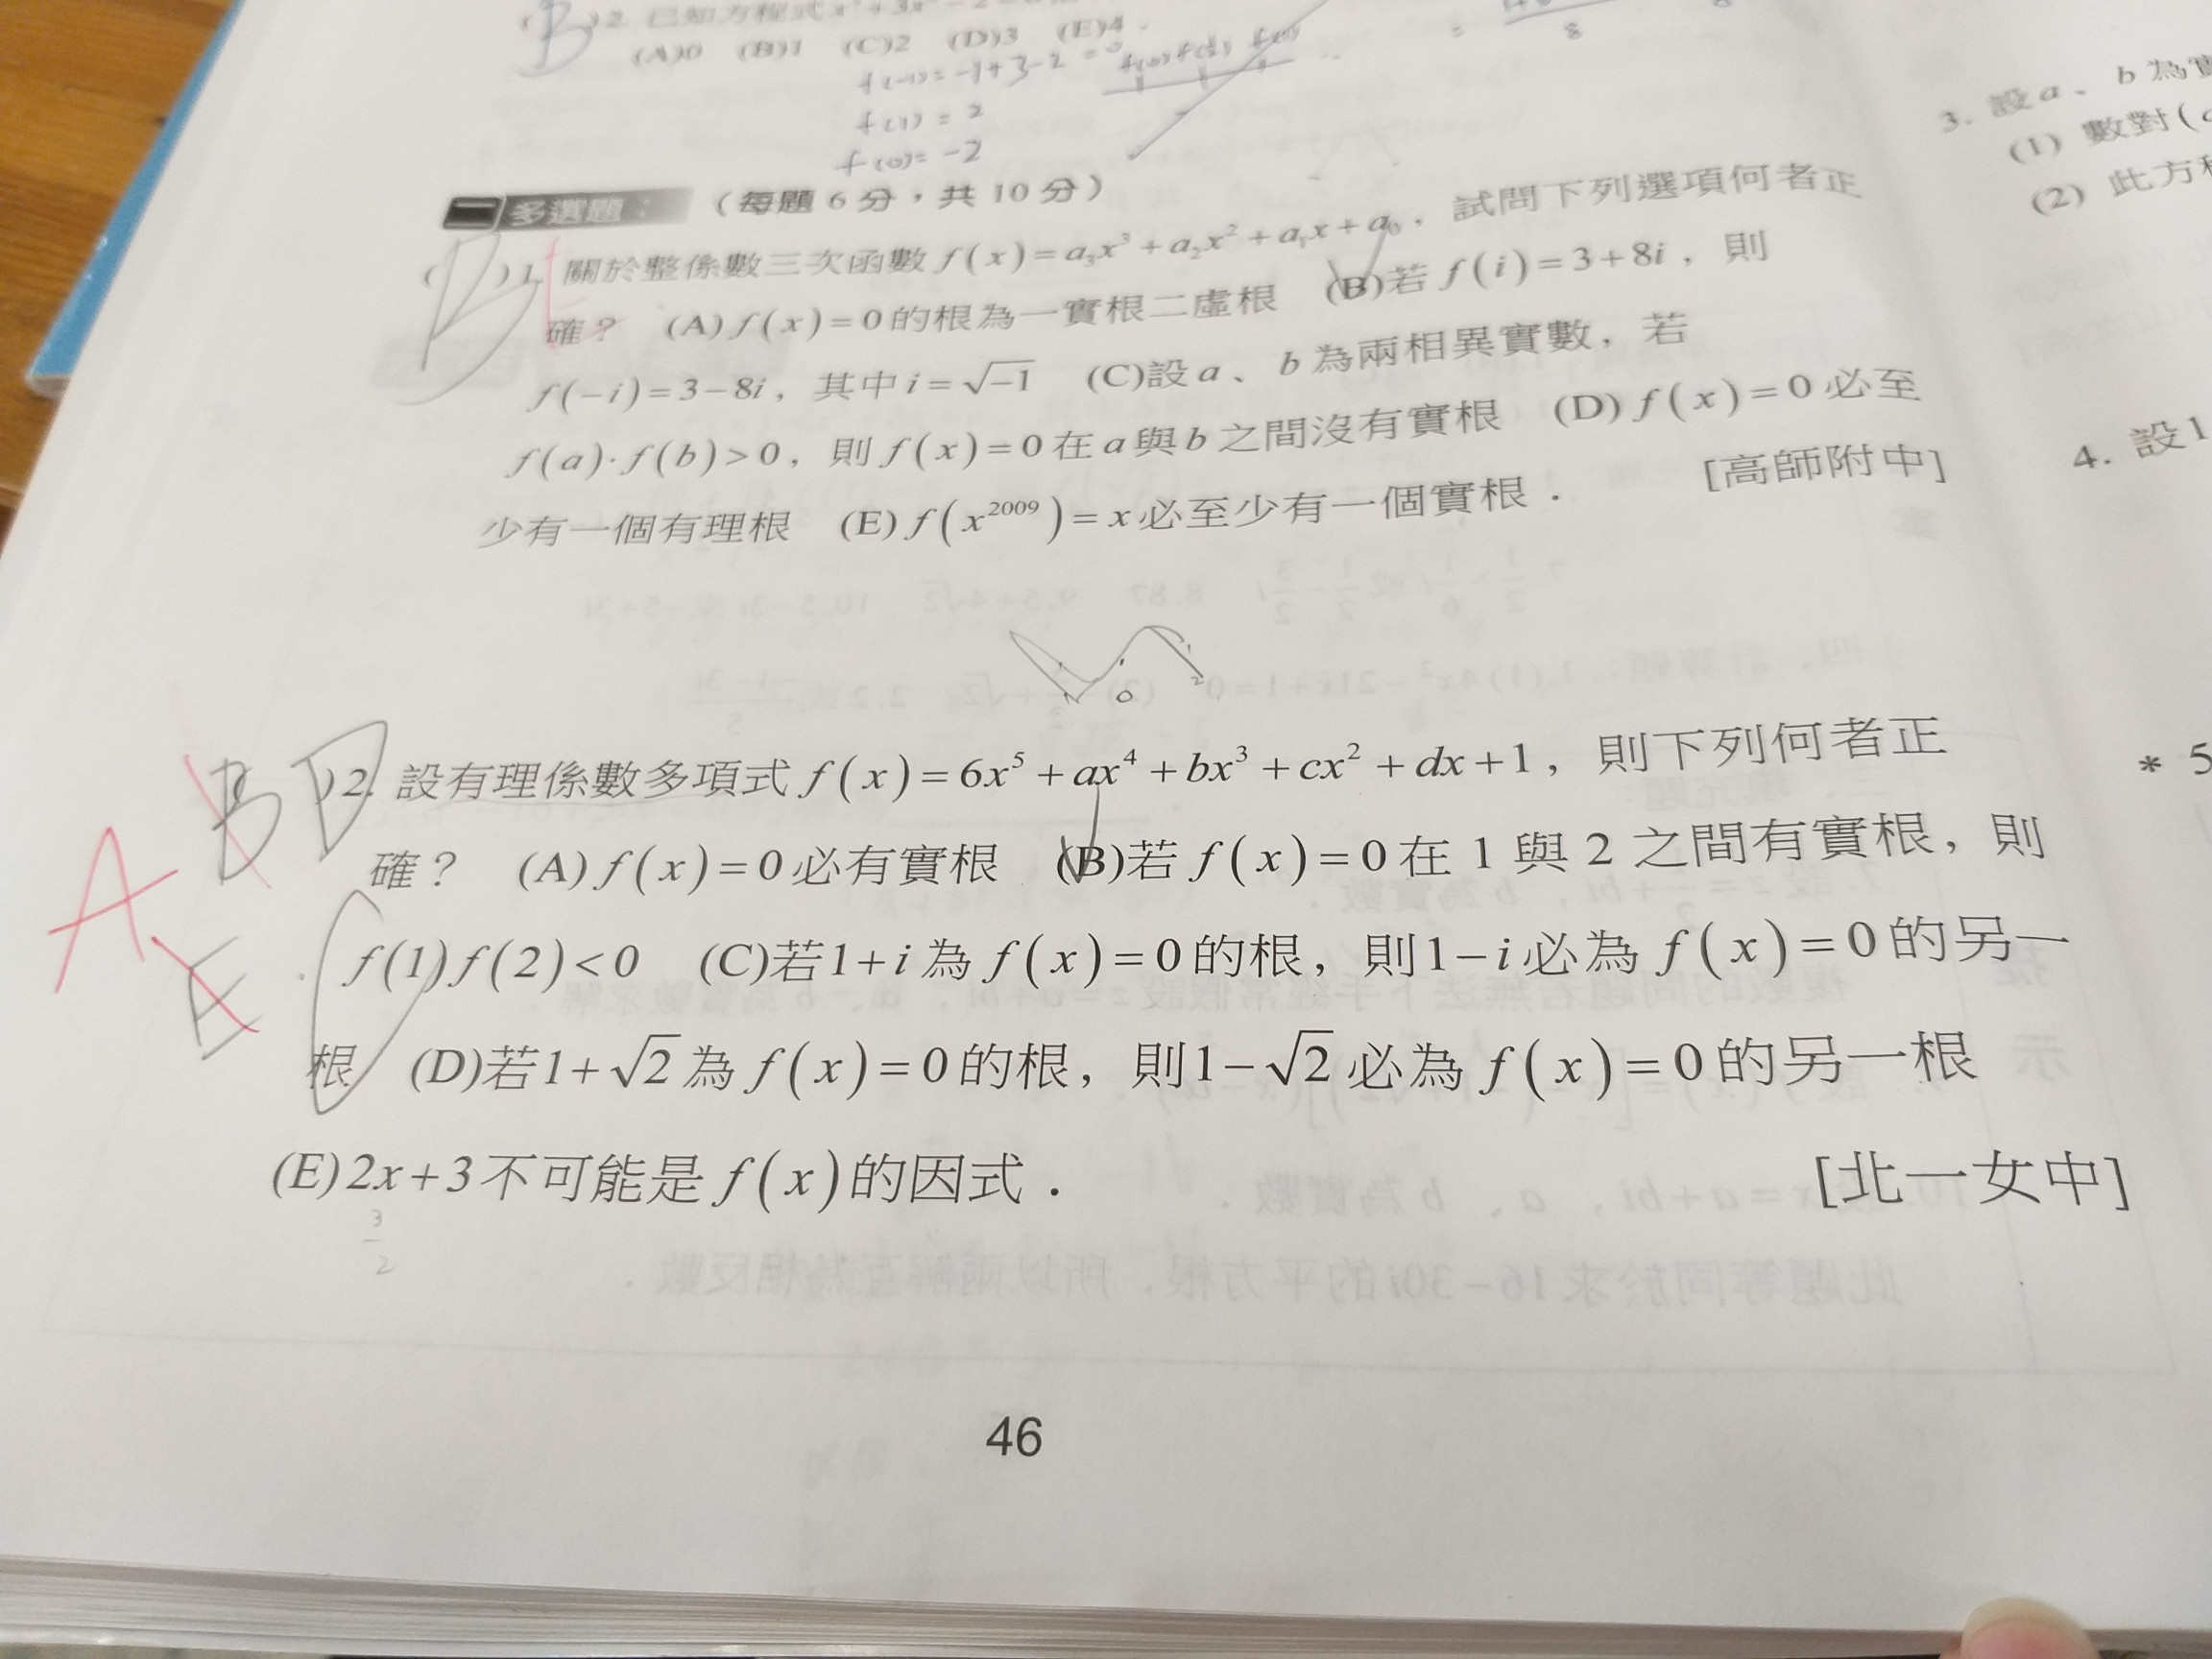 2. 已知方程式
(A)0 (B)1 (C)2 (D)3 (E)4.
f(-1)=-1+3-2=0
f(1)=2
f(0)=-2
8
二 多選題：（每題 6 分，共 10 分）
B ( )1. 關於整係數三次函數 f(x)=a₃x³+a₂x²+a₁x+a₀，試問下列選項何者正
確？ (A) f(x)=0的根為一實根二虛根 (B)若 f(i)=3+8i，則
f(-i)=3-8i，其中 i=√-1 (C)設 a、b 為兩相異實數，若
f(a)·f(b)>0，則 f(x)=0 在 a 與 b 之間沒有實根 (D) f(x)=0 必至
少有一個有理根 (E) f(x²⁰⁰⁹)=x 必至少有一個實根． [高師附中]
0 2
A B D E
)2. 設有理係數多項式 f(x)=6x⁵+ax⁴+bx³+cx²+dx+1，則下列何者正
確？ (A) f(x)=0 必有實根 (B)若 f(x)=0 在 1 與 2 之間有實根，則
f(1)f(2)<0 (C)若1+i 為 f(x)=0 的根，則1-i 必為 f(x)=0 的另一
根 (D)若1+√2 為 f(x)=0 的根，則1-√2 必為 f(x)=0 的另一根
(E) 2x+3 不可能是 f(x) 的因式． [北一女中]
3
2
46
3. 設 a、b 為實
(1) 數對(
(2) 此方程
4. 設1
* 5